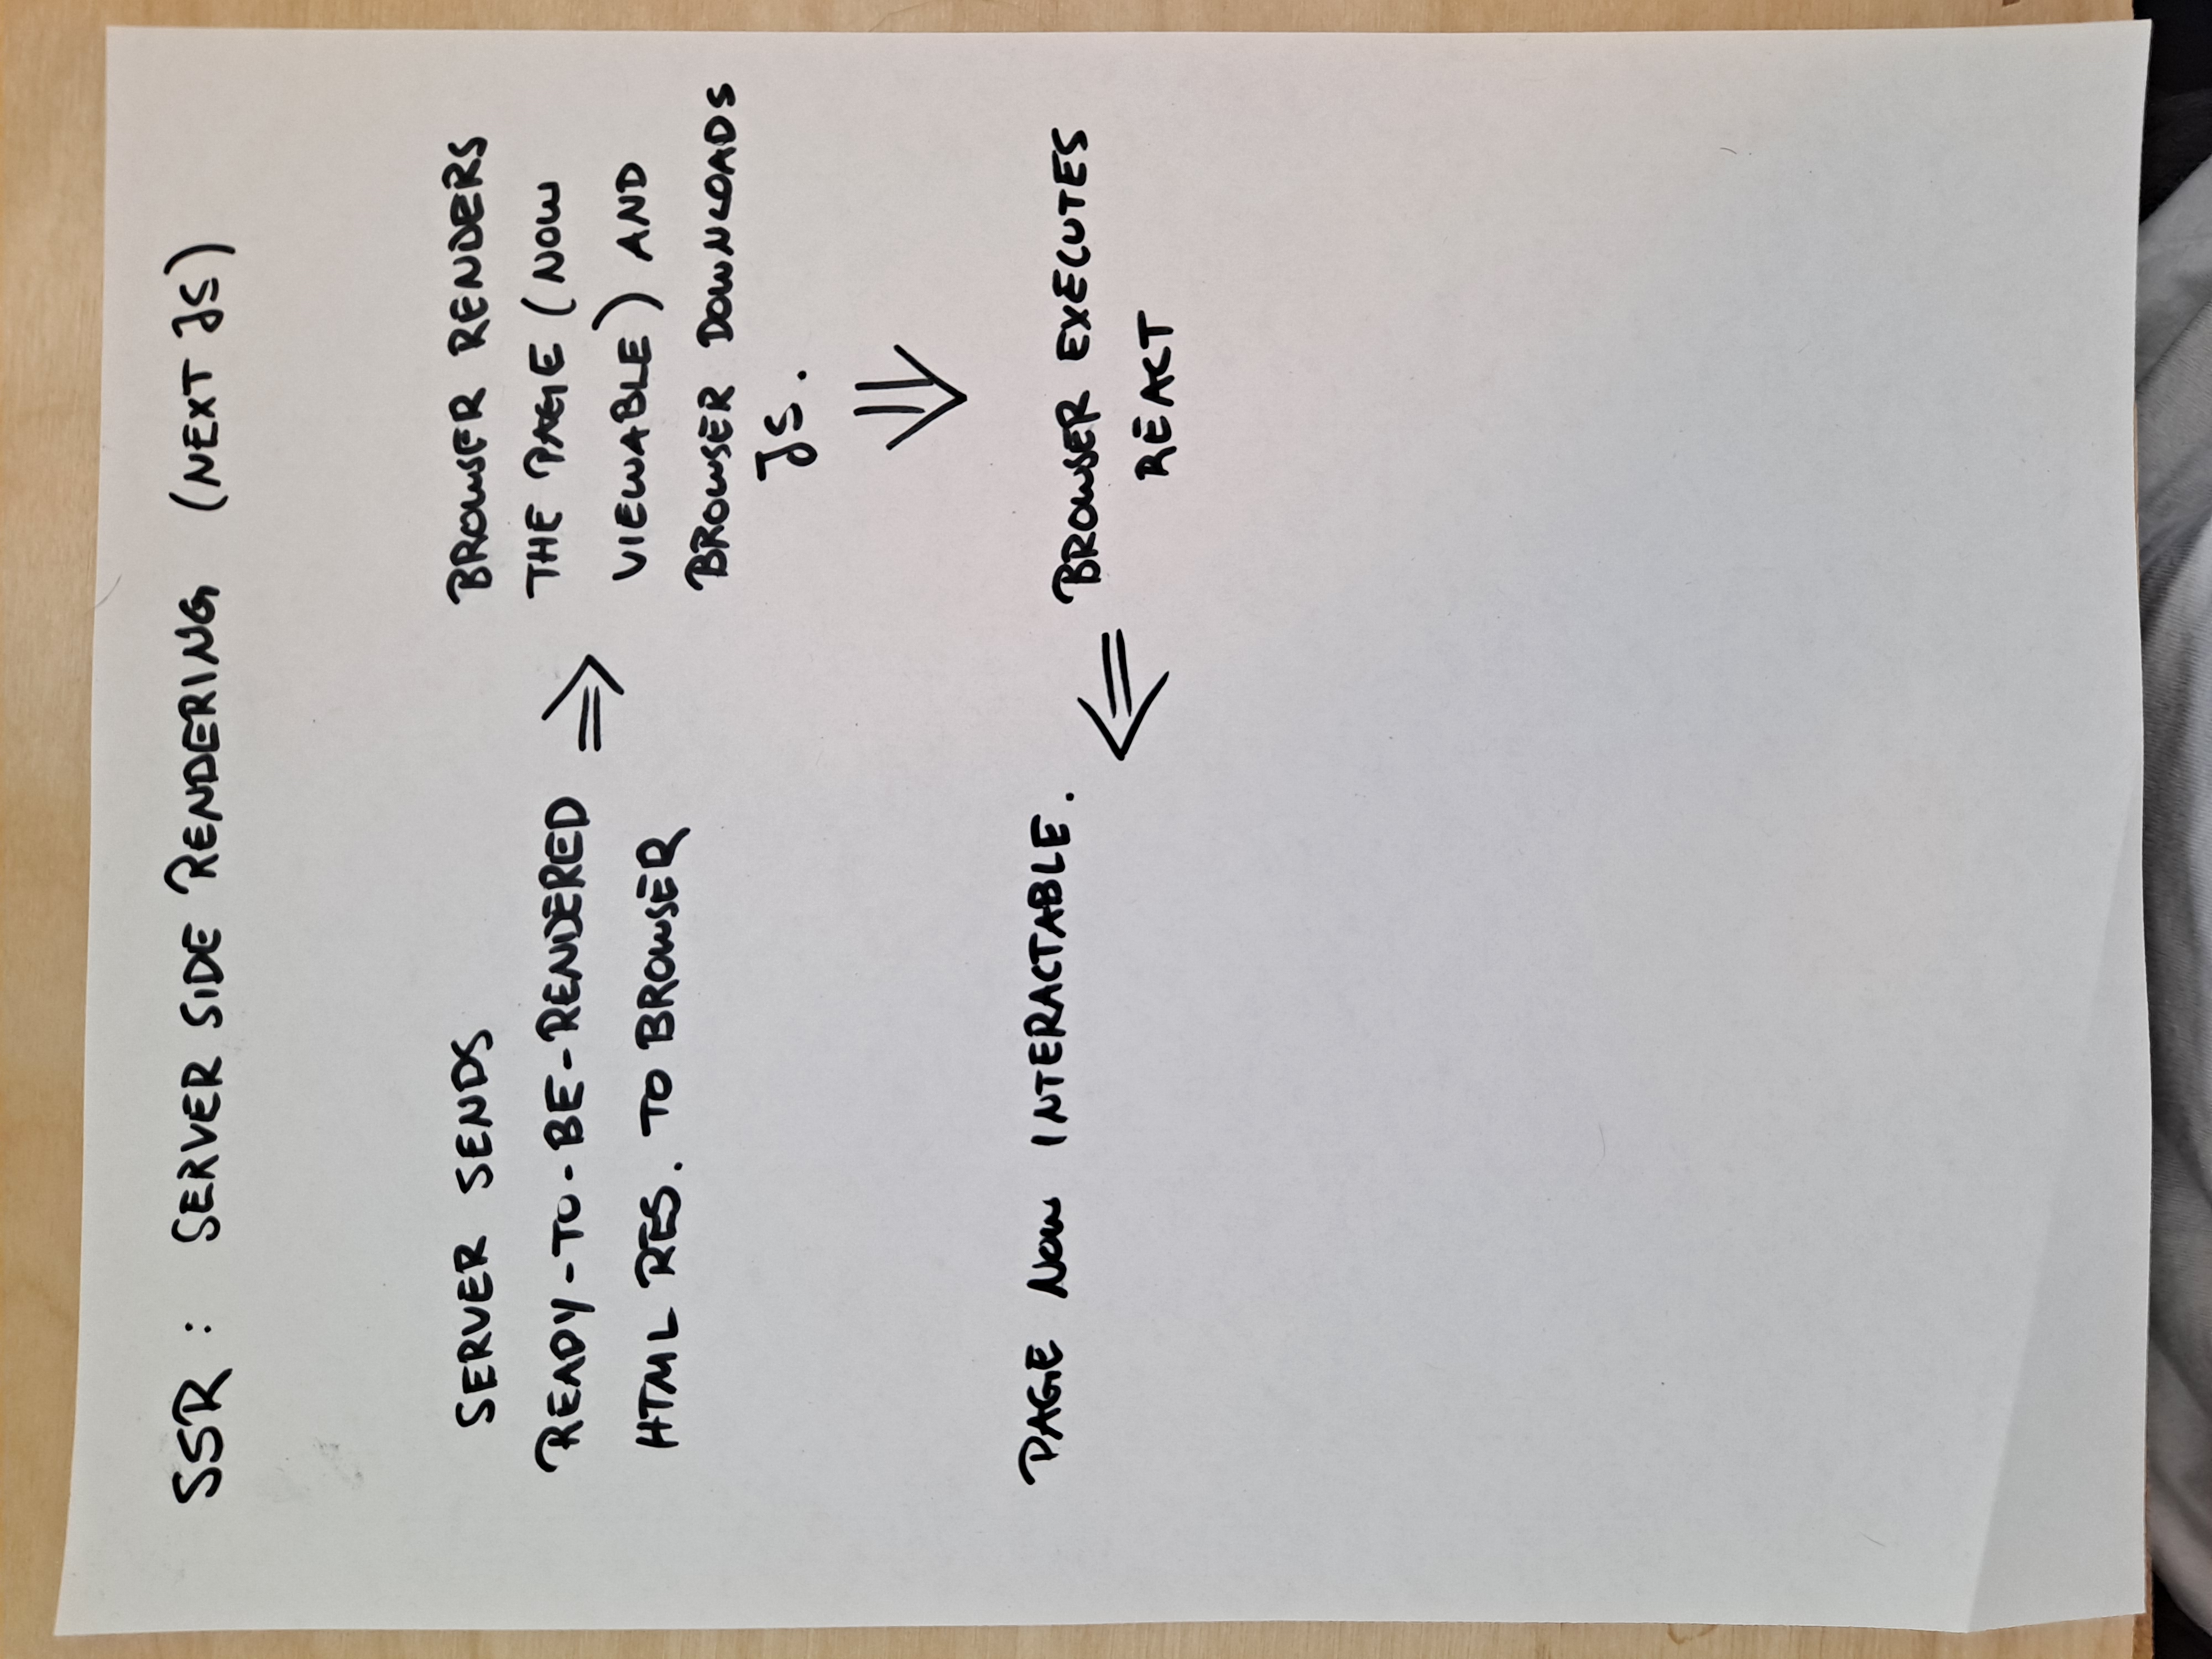 SSR : SERVER SIDE RENDERING (NEXT JS)
SERVER SENDS
READY-TO-BE-RENDERED
HTML RES. TO BROWSER
⇒
BROWSER RENDERS
THE PAGE (NOW
VIEWABLE) AND
BROWSER DOWNLOADS
JS.
⇓
BROWSER EXECUTES
REACT
⇐
PAGE NOW INTERACTABLE.